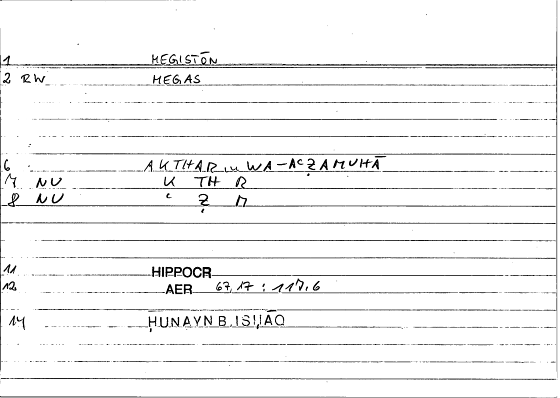 1 MEGISTŌN
2 RW MEGAS
6 AKTHARu WA-AʿẒAMUHĀ
7 NU K TH R
8 NU ʿ Ẓ M
11 HIPPOCR
12 AER 67,17 : 117,6
14 ḤUNAYN B. ISḤĀQ